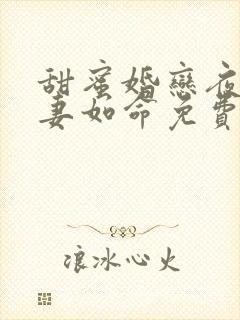 甜蜜婚戀夜
妻如命免費
浪冰心火